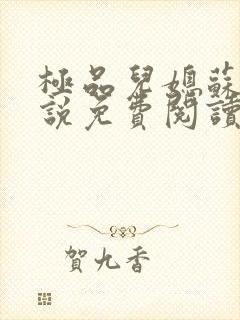 極品兒媳蘇
說免費閱讀
賀九香